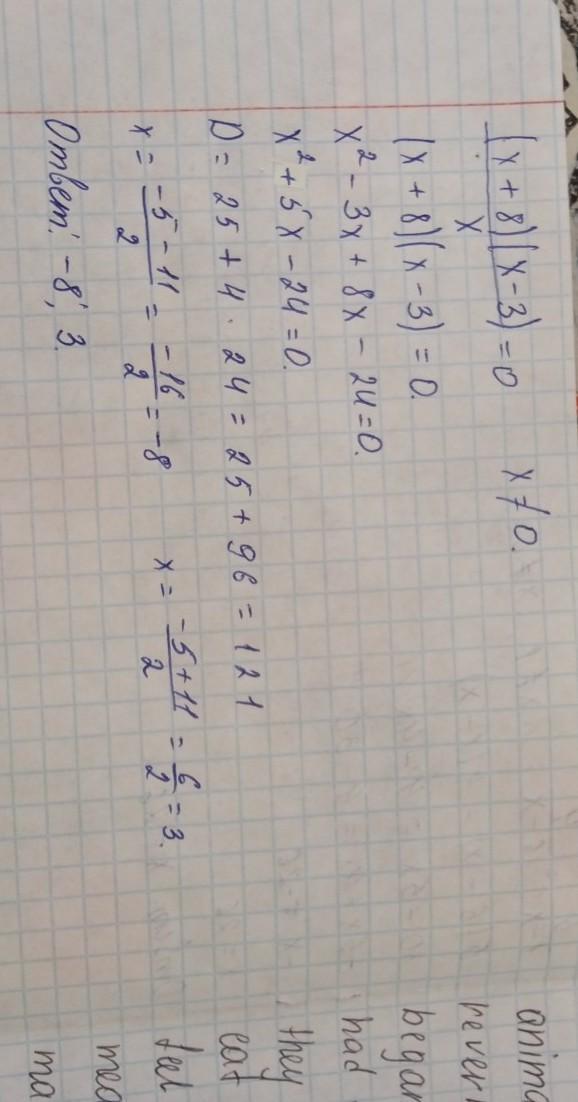 (x + 8)(x - 3) / x = 0   x ≠ 0.
(x + 8)(x - 3) = 0.
x² - 3x + 8x - 24 = 0.
x² + 5x - 24 = 0.
D = 25 + 4 · 24 = 25 + 96 = 121
x = -5 - 11 / 2 = -16 / 2 = -8   x = -5 + 11 / 2 = 6 / 2 = 3.
Ответ: -8; 3.
anima
never
began
had
they
eat
feel
mea
ma